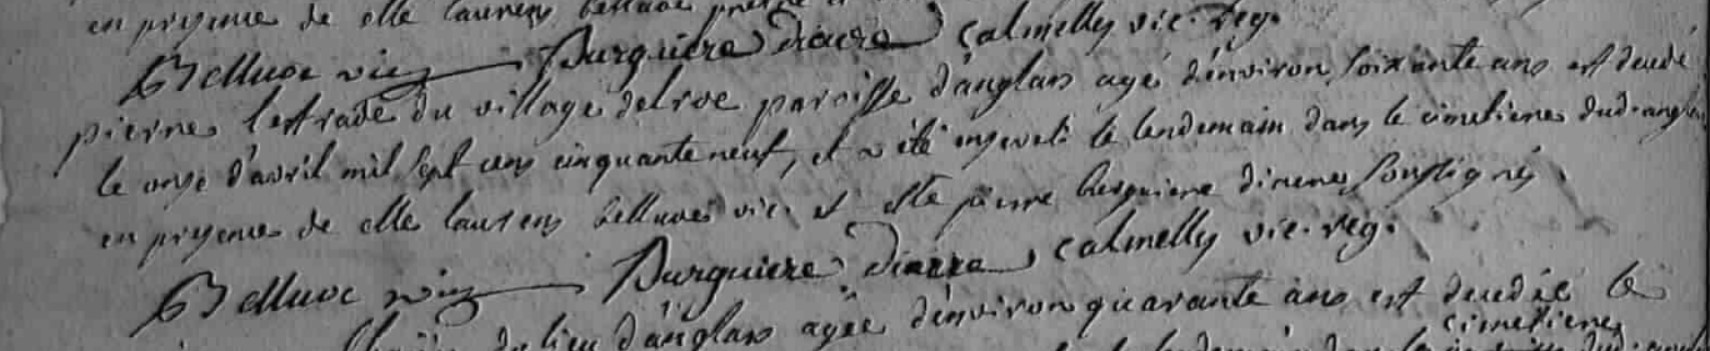 en presence de mtre laurens belluoc
Belluoc vic Burguiere diacre Calmelly vic. reg.
pierre lestrade du village delroc paroisse d'anglars agé d'environ soixante ans est decedé
le onze d'avril mil sept cens cinquante neuf, et a été enseveli le lendemain dans le cimetiere dud. anglars
en presence de mtre laurens belluoc vic. et mtre pierre burguiere diacre soussignés.
Belluoc vic Burguiere diacre Calmelly vic. reg.
du lieu d'anglars agée d'environ quarante ans est decedée le
cimetiere
lendemain dans